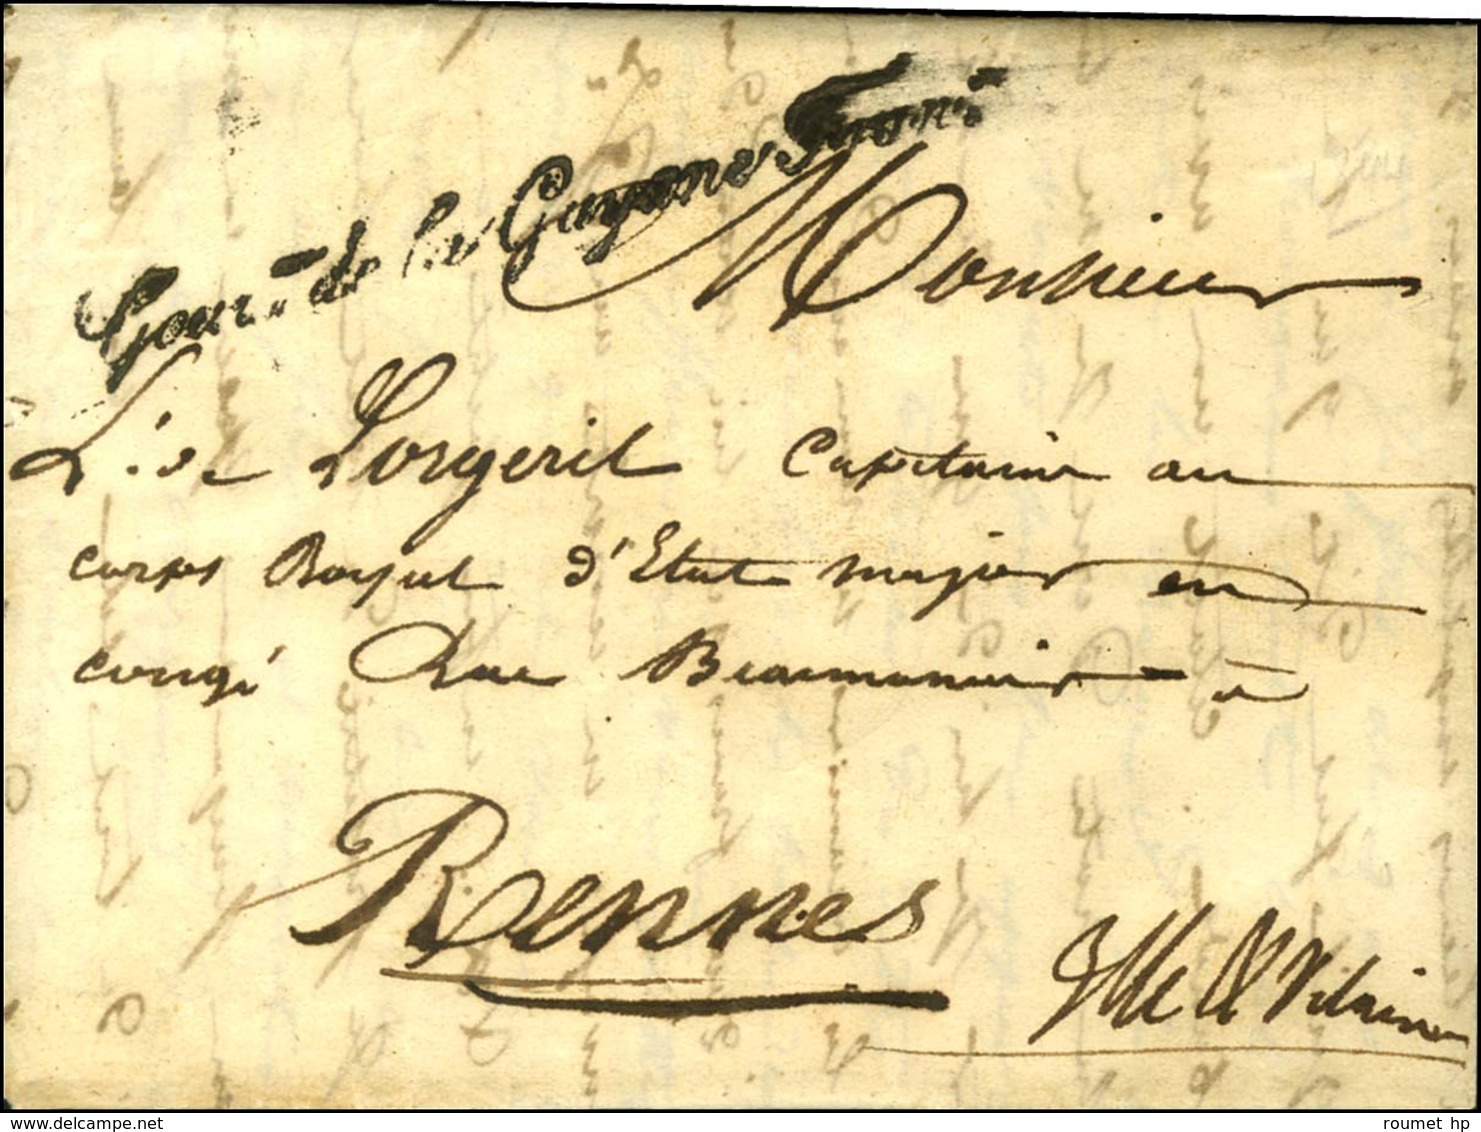 Gouv.t de la Guyane Franc.se
Monsieur
L. de Lorgeril Capitaine au
corps Royal d'Etat major en
congé Rue Beaumanoir à
Rennes
Ille & Vilaine
roumet hp